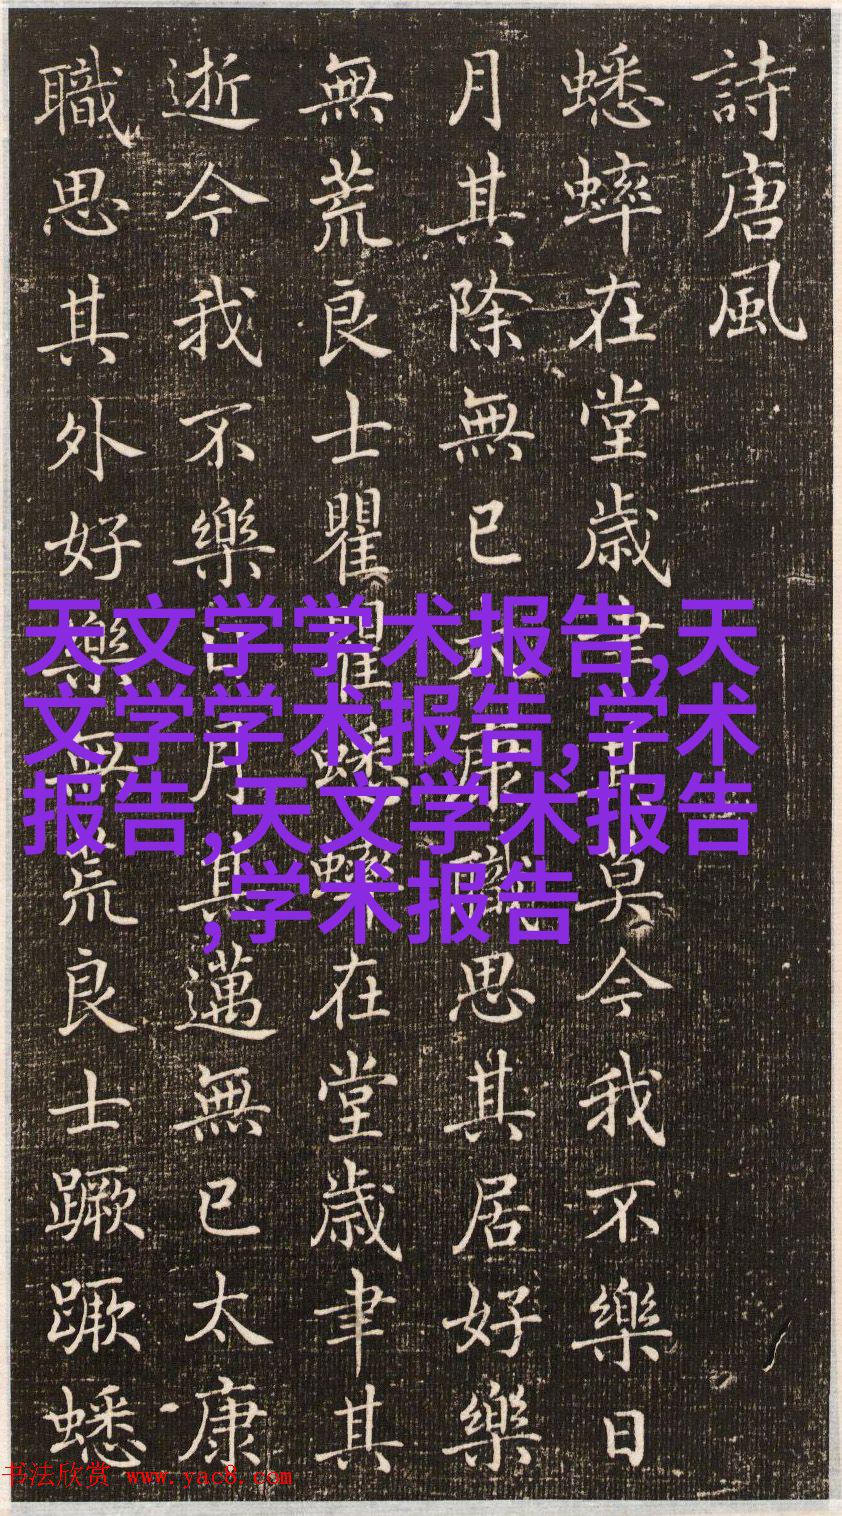 詩唐風
蟋蟀在堂歳聿其莫今我不樂日
月其除無已太康職思其居好樂
無荒良士瞿瞿蟋蟀在堂歳聿其
逝今我不樂日月其邁無已太康
職思其外好樂無荒良士蹶蹶蟋
天文学学术报告,天
文学学术报告,学术
报告,天文学术报告
,学术报告
书法欣赏 www.yac8.com